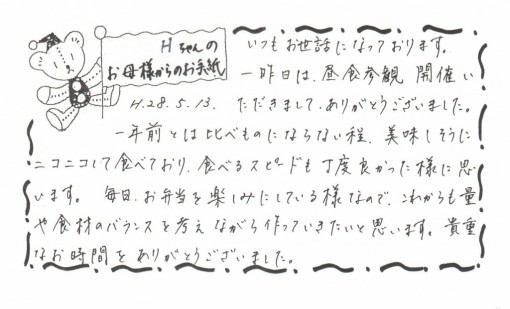 Hちゃんの
お母様からのお手紙
H.28.5.13.
いつもお世話になっております。
一昨日は、昼食参観 開催い
ただきまして、ありがとうございました。
一年前とは比べものにならない程、美味しそうに
ニコニコして食べており、食べるスピードも丁度良かった様に思
います。 毎日、お弁当を楽しみにしている様なので、これからも量
や食材のバランスを考えながら作っていきたいと思います。貴重
なお時間をありがとうございました。